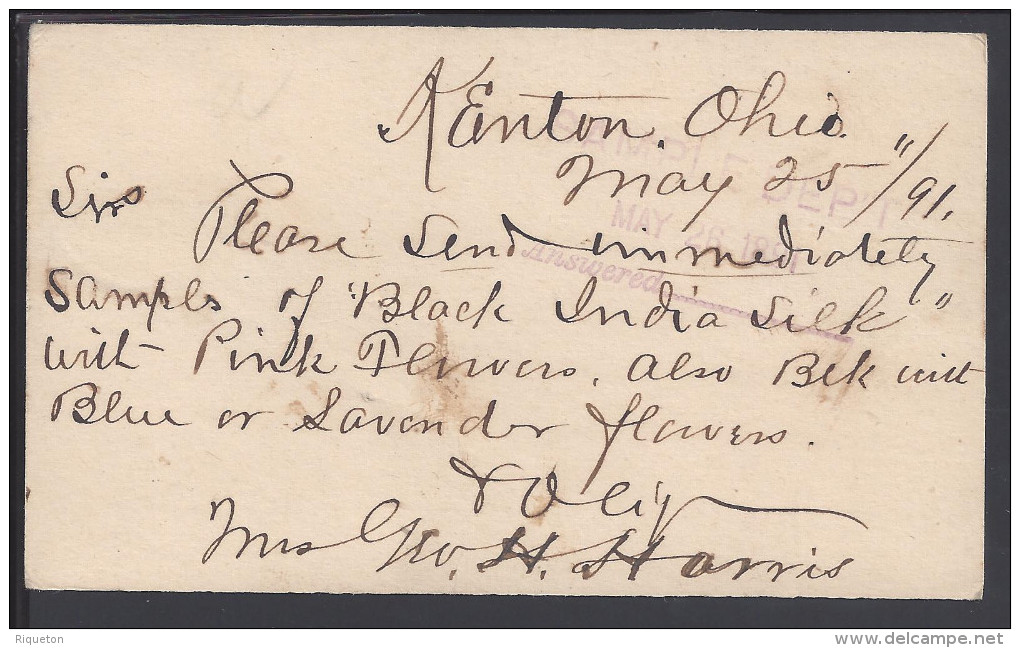 Kenton, Ohio.
May 25"/91.
SAMPLE DEP'T
MAY 26 1891
Answered
Sirs
Please send immediately
Samples of "Black India Silk"
with Pink Flowers, also Blk with
Blue or Lavender flowers.
& Oblig
Mrs Geo. H. Harris
Riqueton
www.delcampe.net